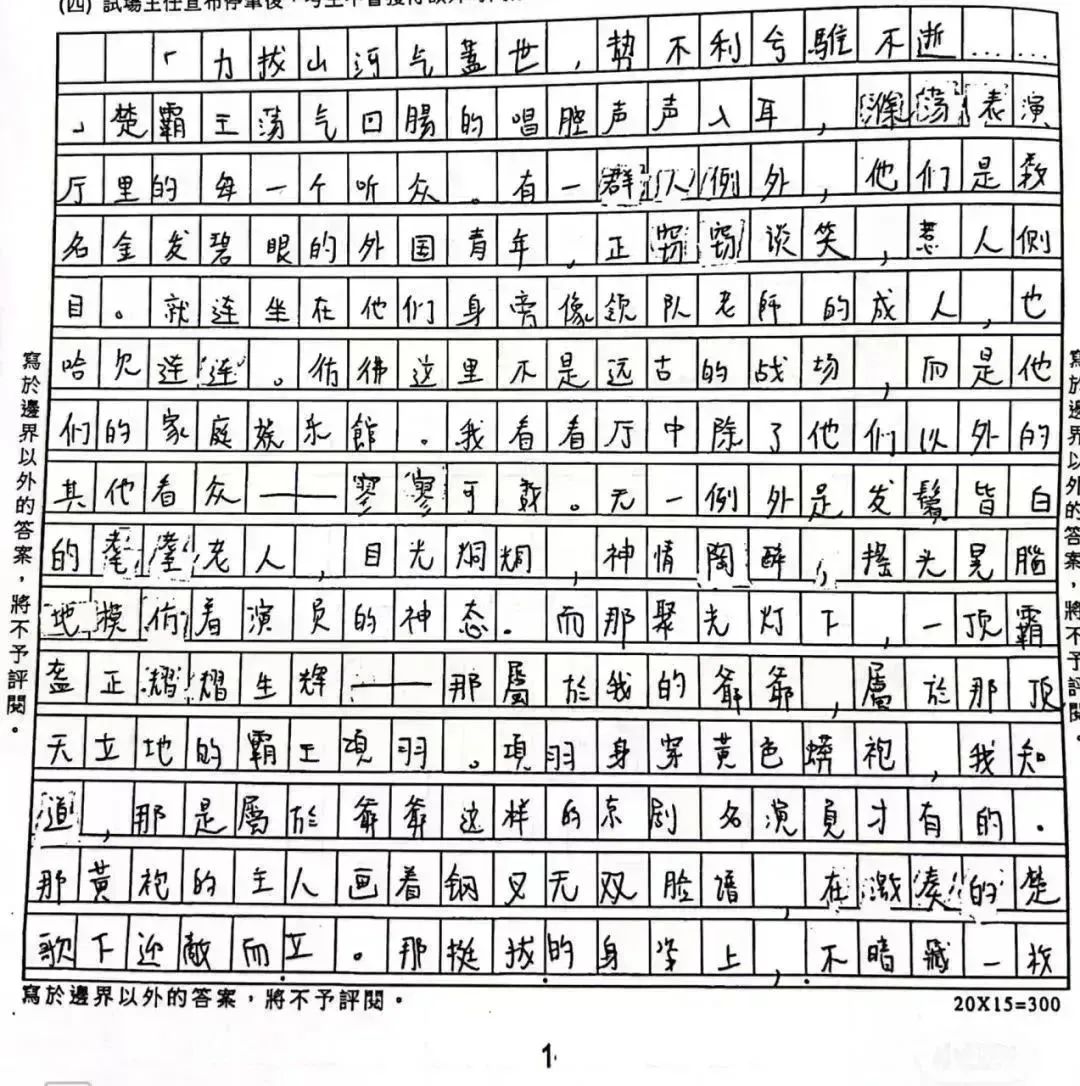 (四) 試場主任宣布停筆後,考生不會獲得額外時間
「力拔山河气蓋世,势不利兮騅不逝……
」楚霸王荡气回腸的唱腔声声入耳,滌荡表演
厅里的每一个听众。有一群人例外,他们是数
名金发碧眼的外国青年,正窃窃谈笑,惹人侧
目。就连坐在他们身旁像领队老师的成人,也
哈欠连连。彷彿这里不是远古的战场,而是他
们的家庭娱乐館。我看看厅中除了他们以外的
其他看众——寥寥可数。无一例外是发鬓皆白
的耄耋老人,目光炯炯,神情陶醉,摇光晃腦
地模仿着演员的神态。而那聚光灯下,一顶霸
盔正熠熠生辉——那屬於我的爺爺,屬於那顶
天立地的霸王項羽。項羽身穿黃色蟒袍,我知
道,那是屬於爺爺这样的京剧名演員才有的。
那黃袍的主人画着钢叉无双脸谱,在激凑的楚
歌下迎敵而立。那挺拔的身姿上,不暗飛一枚
寫於邊界以外的答案,將不予評閱。
寫於邊界以外的答案,將不予評閱。
寫於邊界以外的答案,將不予評閱。
20X15=300
1